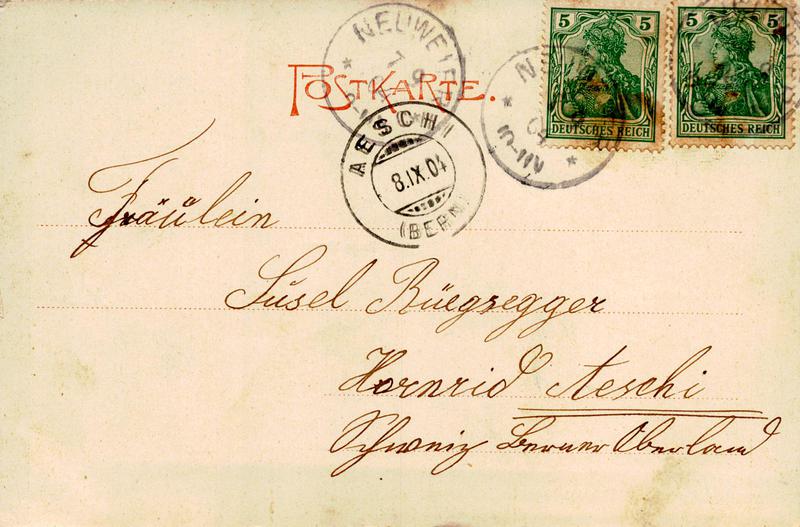 NEUWEIER
7 9
5
5
POSTKARTE.
DEUTSCHES REICH
DEUTSCHES REICH
AESCHI
8.IX.04
(BERN)
Fräulein
Süsel Rüegsegger
Hornrid Aeschi
Schweiz Berner Oberland